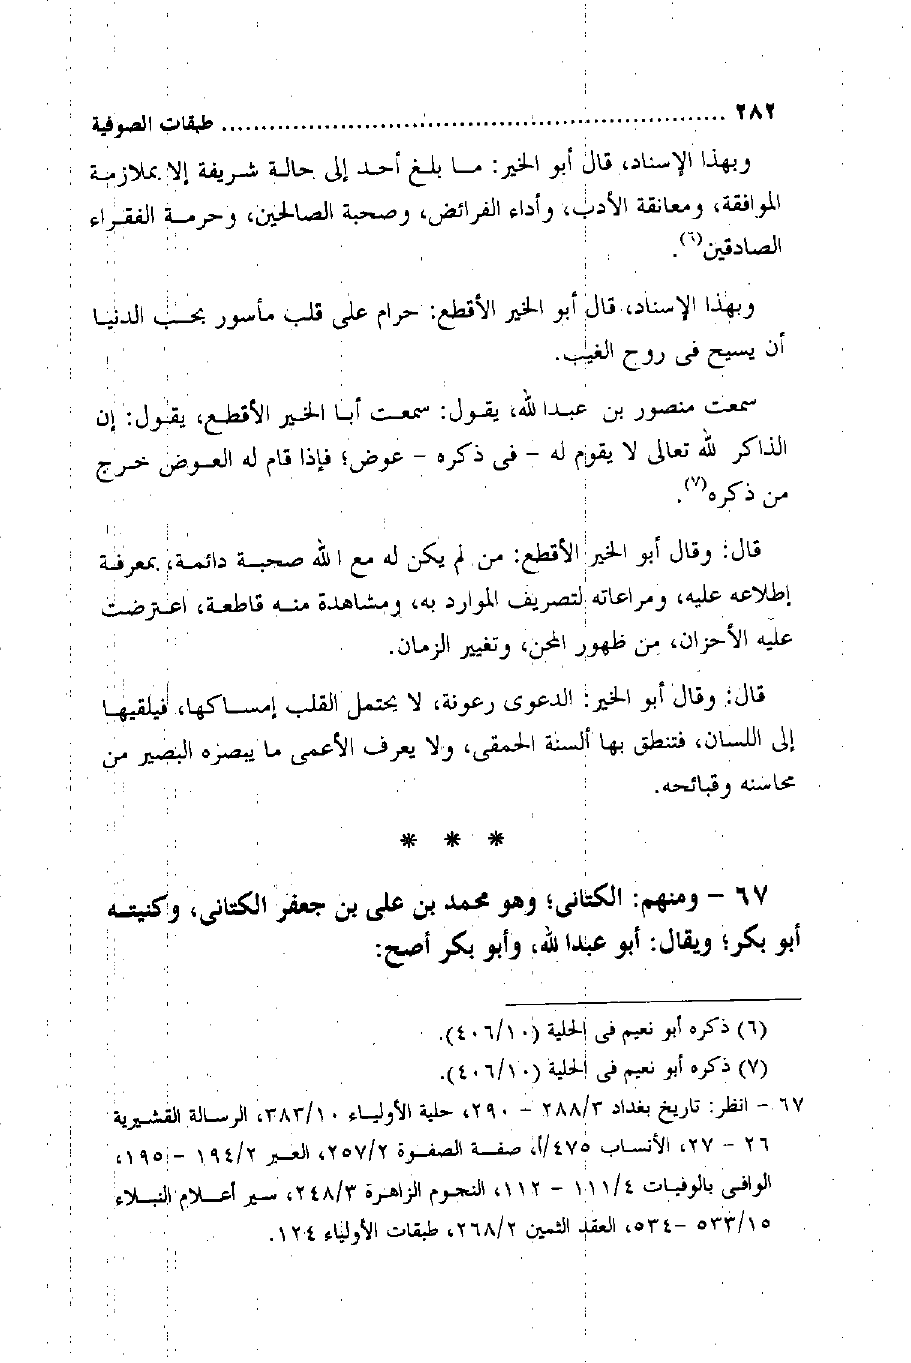 ٢٨٢ ........................................................ طبقات الصوفية
وبهذا الإسناد، قال أبو الخير: ما بلغ أحد إلى حالة شريفة إلا بملازمة
الموافقة، ومعانقة الأدب، وأداء الفرائض، وصحبة الصالحين، وحرمة الفقراء
الصادقين(٦).
وبهذا الإسناد، قال أبو الخير الأقطع: حرام على قلب مأسور بحب الدنيا
أن يسيح فى روح الغيب.
سمعت منصور بن عبدالله، يقول: سمعت أبا الخير الأقطع، يقول: إن
الذاكر لله تعالى لا يقوم له - فى ذكره - عوض؛ فإذا قام له العوض خرج
من ذكره(٧).
قال: وقال أبو الخير الأقطع: من لم يكن له مع الله صحبة دائمة، بمعرفة
إطلاعه عليه، ومراعاته لتصريف الموارد به، ومشاهدة منه قاطعة، اعترضت
عليه الأحزان، من ظهور المحن، وتغيير الزمان.
قال: وقال أبو الخير: الدعوى رعونة، لا يحتمل القلب إمساكها، فيلقيها
إلى اللسان، فتنطق بها ألسنة الحمقى، ولا يعرف الأعمى ما يبصره البصير من
محاسنه وقبائحه.
* * *
٦٧ - ومنهم: الكتانى؛ وهو محمد بن على بن جعفر الكتانى، وكنيته
أبو بكر؛ ويقال: أبو عبدالله، وأبو بكر أصح:
(٦) ذكره أبو نعيم فى الحلية (٤٠٦/١٠).
(٧) ذكره أبو نعيم فى الحلية (٤٠٦/١٠).
٦٧ - انظر: تاريخ بغداد ٢٨٨/٣ - ٢٩٠، حلية الأولياء ٣٨٣/١٠، الرسالة القشيرية
٢٦ - ٢٧، الأنساب ٤٧٥/أ، صفة الصفوة ٢٥٧/٢، العبر ١٩٤/٢ - ١٩٥،
الوافى بالوفيات ١١١/٤ - ١١٢، النجوم الزاهرة ٢٤٨/٣، سير أعلام النبلاء
٥٣٣/١٥ -٥٣٤، العقد الثمين ٢٦٨/٢، طبقات الأولياء ١٢٤.